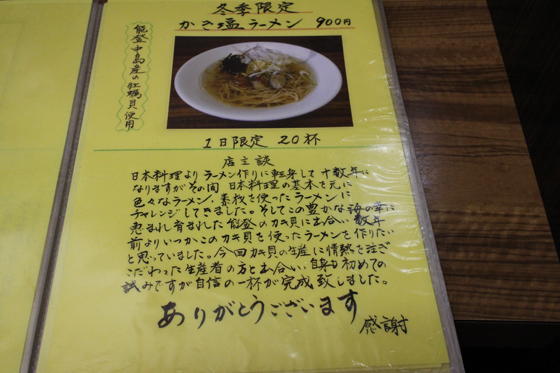 冬季限定
かき塩ラーメン 900円
能登中島産の牡蠣貝使用
1日限定 20杯
店主談
日本料理よりラーメン作りに転身して十数年に
なりますがその間 日本料理の基本を元に
色々なラーメン、素材を使ったラーメンに
チャレンジしてきました。そしてこの豊かな海の幸に
恵まれ育まれた能登のカキ貝に出会い 数年
前よりいつかこのカキ貝を使ったラーメンを作りたい
と思っていました。今回カキ貝の生産に情熱を注ぎ
こだわった生産者の方と出会い、自身も初めての
試みですが自信の一杯が完成致しました。
ありがとうございます
感謝